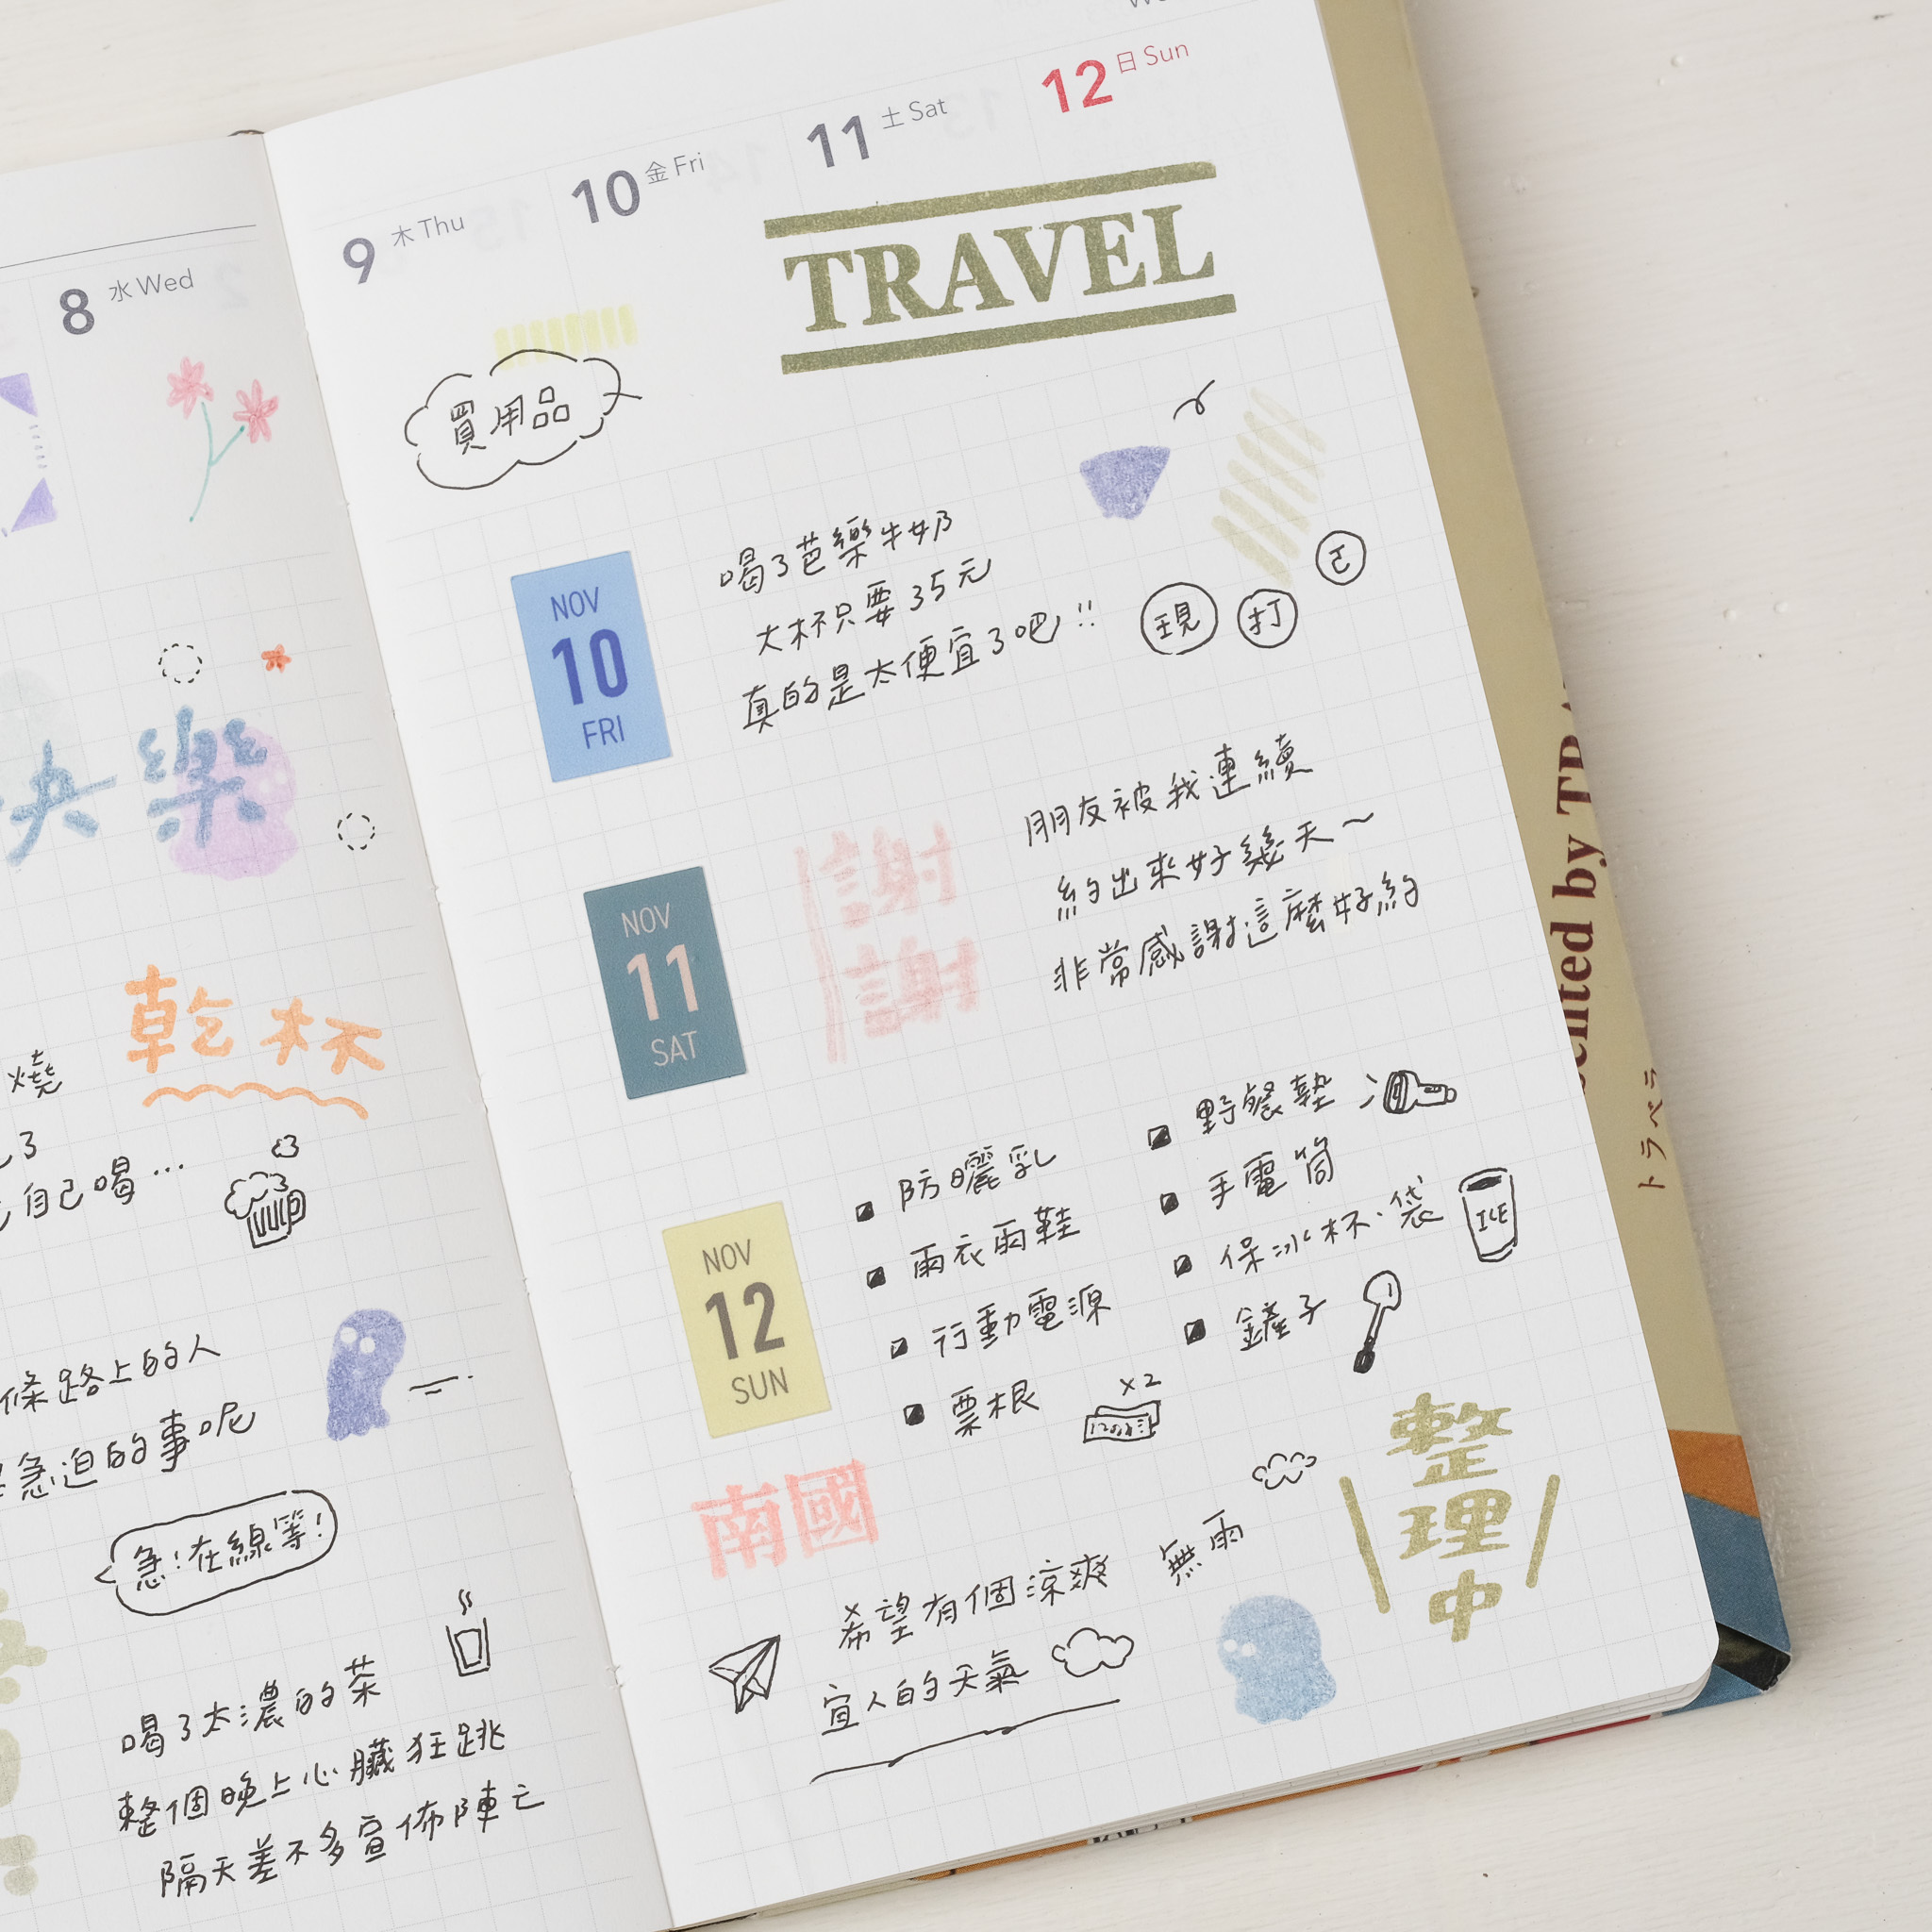 8 水 Wed
快樂
乾杯
燒
了
自己喝…
條路上的人
急迫的事呢
急!在線等!
喝了太濃的茶
整個晚上心臟狂跳
隔天差不多宣佈陣亡
9 木 Thu
10 金 Fri
11 土 Sat
12 日 Sun
TRAVEL
買用品
NOV
10
FRI
喝了芭樂牛奶
大杯只要35元
真的是太便宜了吧!!
現 打 ㄛ
NOV
11
SAT
謝謝
朋友被我連續
約出來好幾天~
非常感謝這麼好約
NOV
12
SUN
防曬乳
雨衣雨鞋
行動電源
票根
x2
野餐墊
手電筒
保冰杯、袋
ICE
鏟子
南國
希望有個涼爽 無雨
宜人的天氣
整理中
ented by TRA
トラベラ